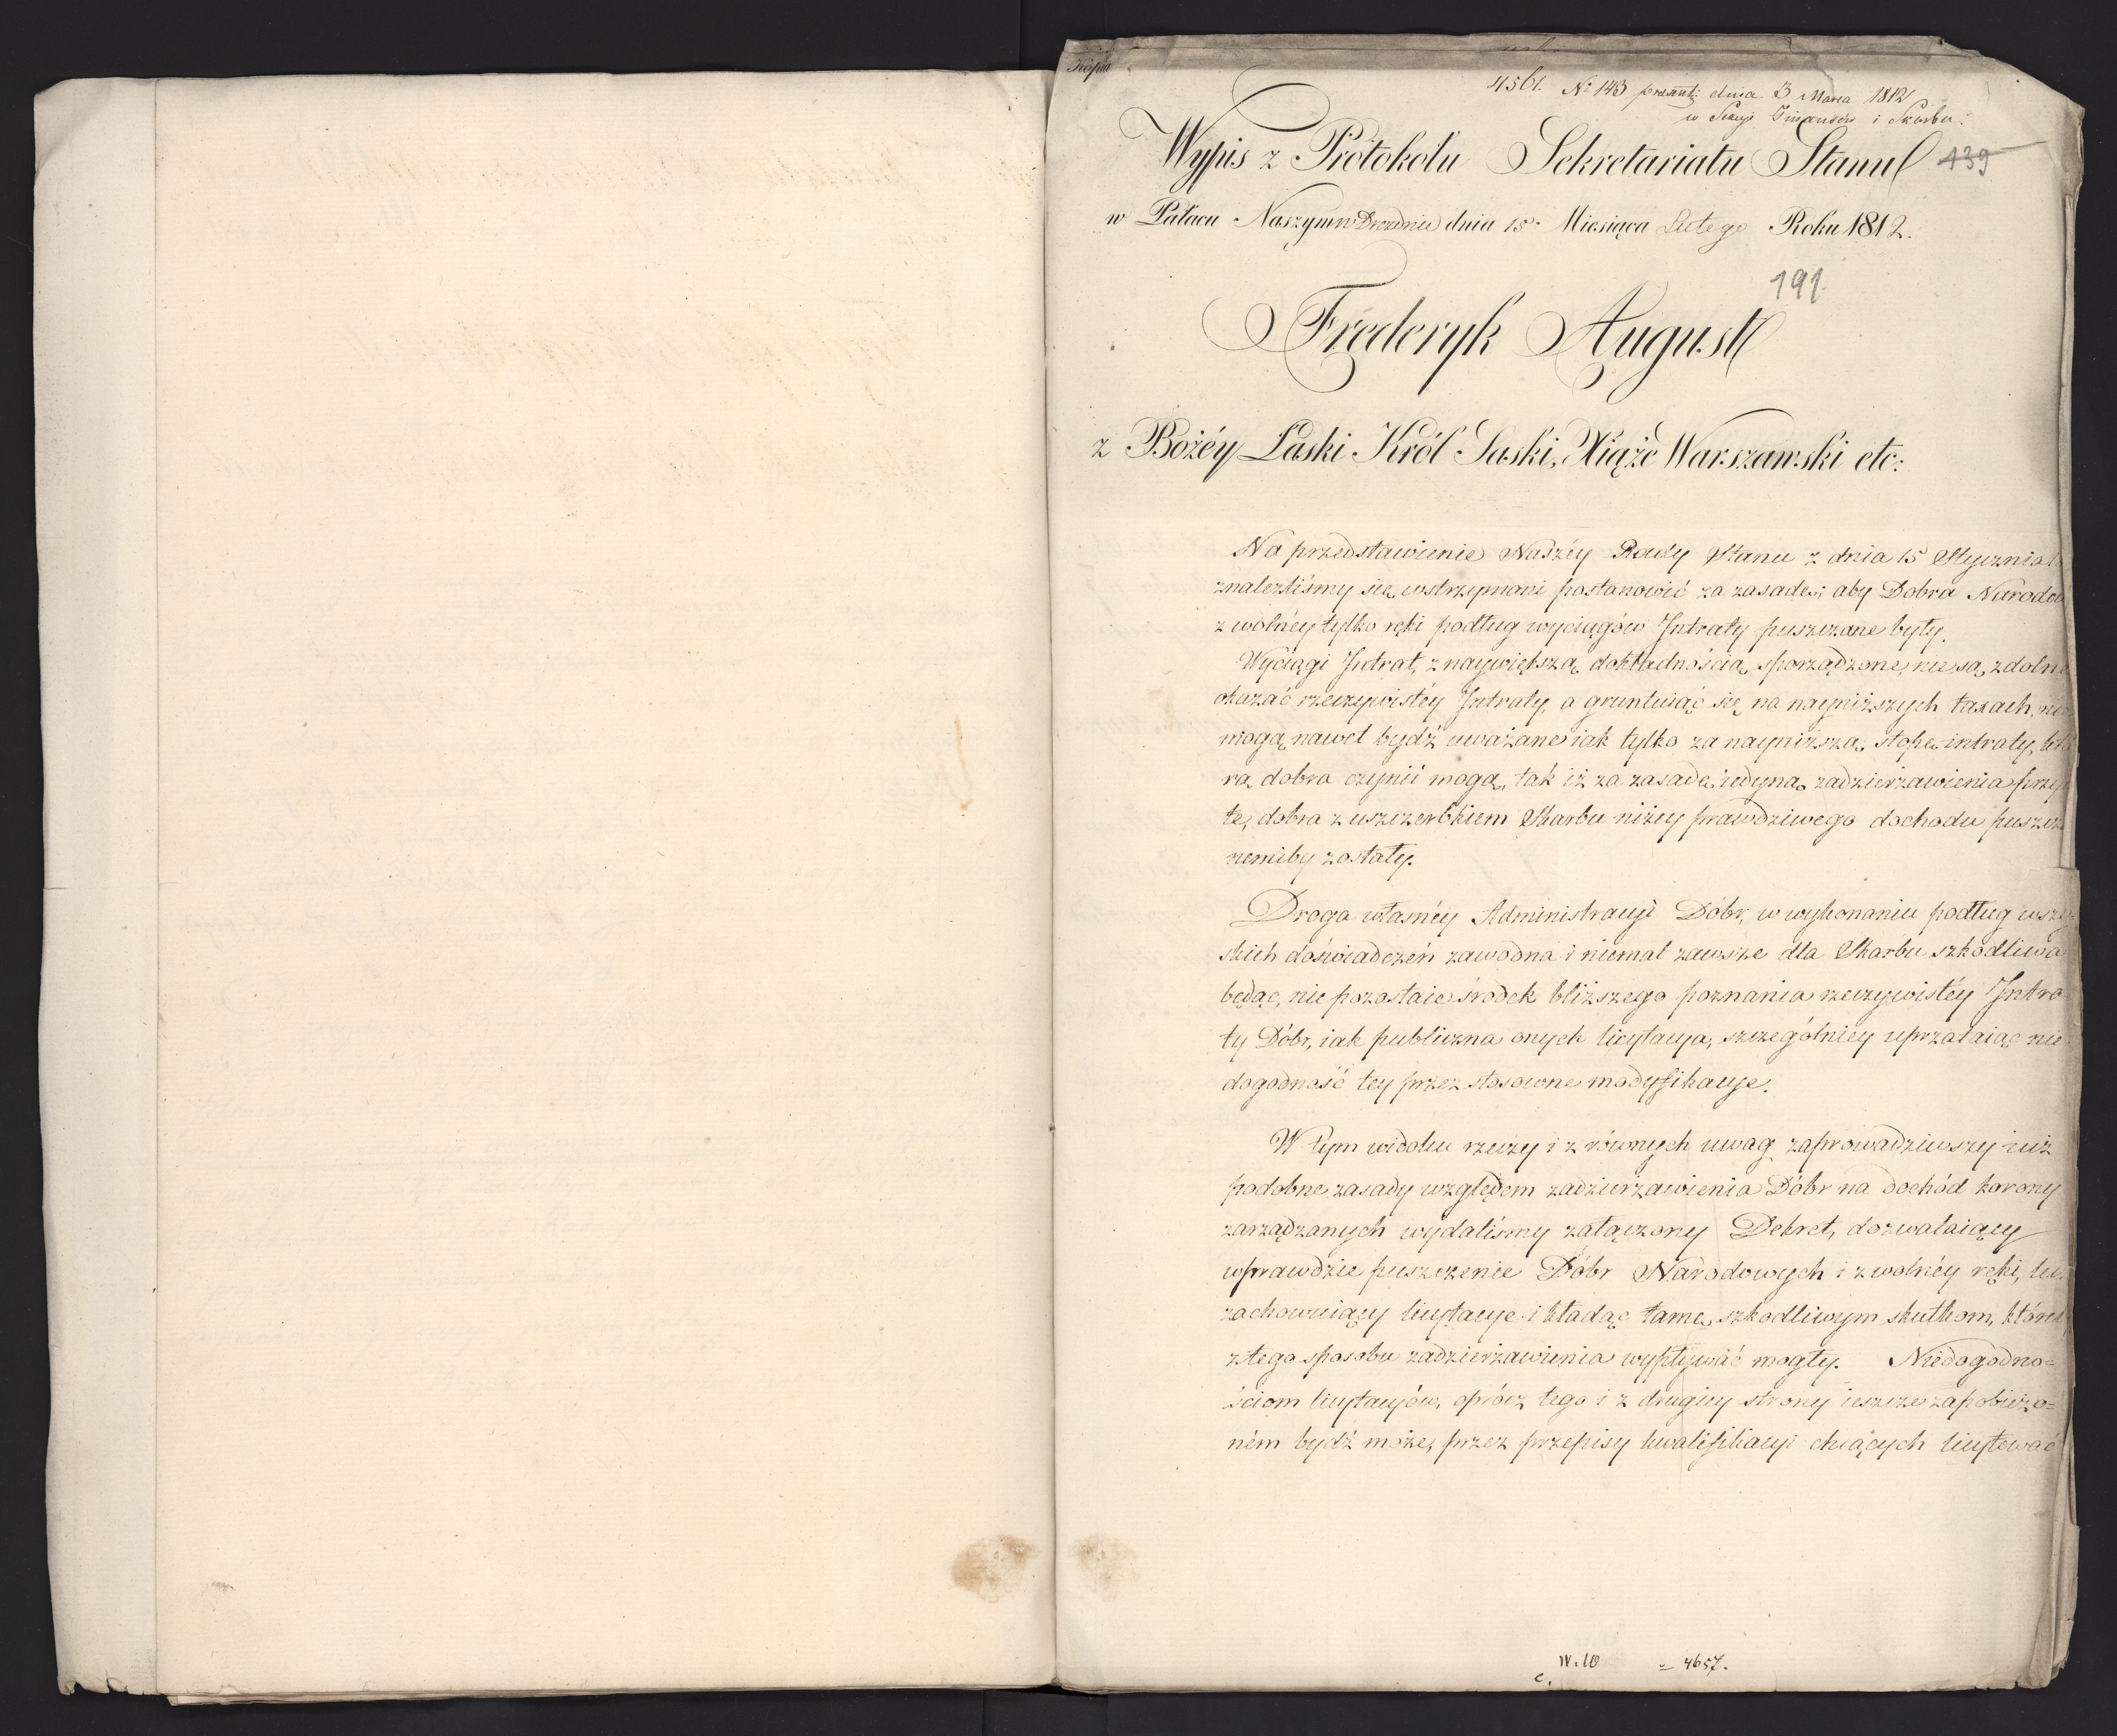 Kopia
4561. No 143 praesent: dnia 3 Marca 1812
w Sekcyi Finansów i Skarbu.
Wypis z Protokołu Sekretariatu Stanu 139
w Pałacu Naszym w Dreznie dnia 15. Miesiąca Lutego Roku 1812.
191
Frederyk August
z Bożéy Łaski Król Saski, Xiąże Warszawski etc:
Na przedstawienie Naszéy Rady Stanu z dnia 15 Stycznia
znalezliśmy się wstrzymani postanowić za zasadę, aby Dobra Narodo
z wolnéy tylko ręki podług wyciągów Intraty puszczane były.
Wyciągi Intrat, z naywiększą dokładnością sporządzone, nie są zdolne
okazać rzeczywistéy Intraty, a gruntuiąc się na nayniższych taxach, nie
mogą nawet bydź uważane iak tylko za nayniższą stopę intraty, któ
rą dobra czynić mogą, tak iż za zasadę iedyną zadzierżawienia przy
te, dobra z uszczerbkiem Skarbu niżey prawdziwego dochodu puszczo
nemiby zostały.
Droga własnéy Administracyi Dóbr, w wykonaniu podług wszy
stkich doświadczeń zawodna i niemal zawsze dla Skarbu szkodliwa
będąc, nie pozostaie środek bliższego poznania rzeczywistéy Intra
ty Dóbr, iak publiczna onych licytacya, szczególniey uprzątaiąc nie
dogodność tey przez stosowne modyfikacye.
W tym widoku rzeczy i z równych uwag zaprowadziwszy iuż
podobne zasady względem zadzierżawienia Dóbr na dochód korony
zarządzanych wydaliśmy załączony Dekret, dozwalaiący
wprawdzie puszczenie Dóbr Narodowych i z wolnéy ręki, lecz
zachowuiący licytacye i kładąc tamę szkodliwym skutkom, które
z tego sposobu zadzierżawienia wypływać mogły. Niedogodno=
ściom licytacyów, oprócz tego i z drugiey strony ieszcze zapobieżo=
ném bydź może, przez przepisy kwalifikacyi chcących licytować
W. 10 = 4657.
C.